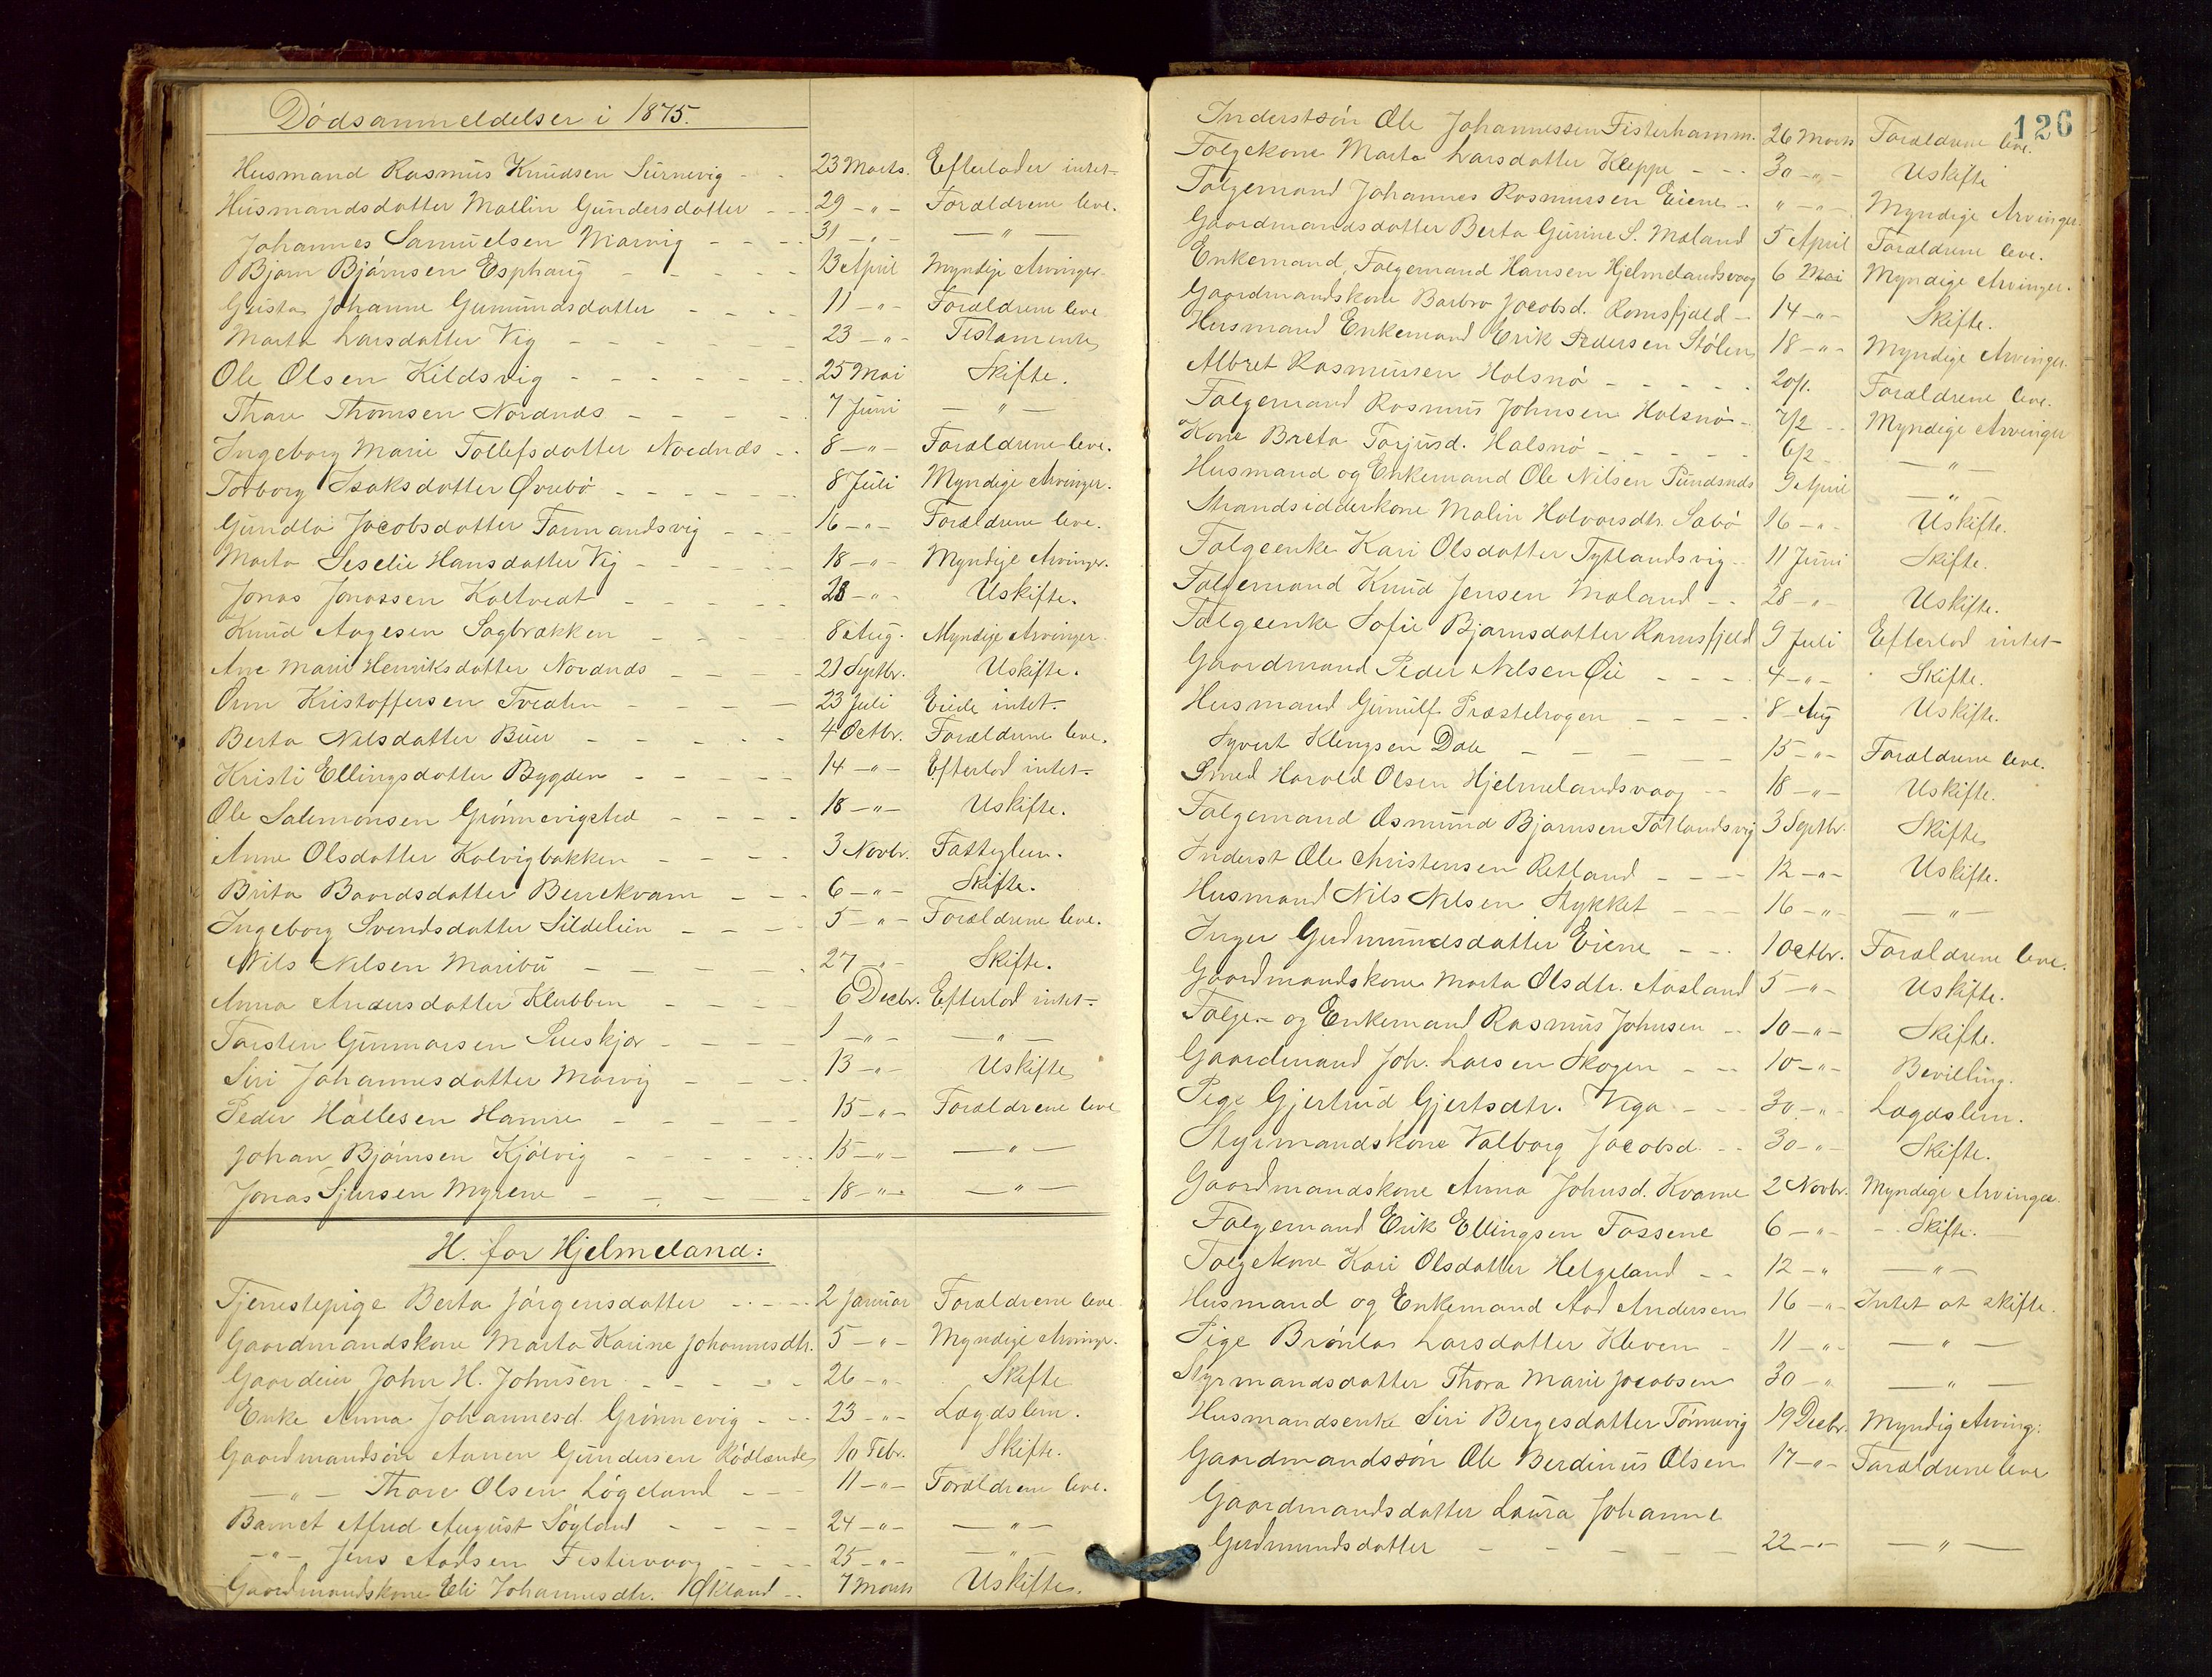 Dödsanmeldelser i 1875.
Husmand Rasmus Knudsen Surnevig - - 23 Marts. Efterlader intet
Husmandsdatter Mallin Gundersdatter - - 29 -"- Forældrene leve.
Johannes Samuelsen Marvig - - - - 31 -"- - " -
Bjørn Bjørnsen Esphaug - - - - - 13 April Myndige Arvinger.
Gusta Johanne Gunmundsdatter - - - - 11 -"- Forældrene leve
Marta Larsdatter Vig - - - - - - 23 -"- Testamente
Ole Olsen Kildsvig - - - - - - 25 Mai Skifte.
Thore Thomsen Nordnes - - - - - 7 Juni - " -
Ingeborg Marie Tollefsdatter Nordnes - - 8 -"- Forældrene leve.
Torborg Isaksdatter Øvrebö - - - - - 8 Juli Myndige Arvinger.
Gundla Jacobsdatter Tormandsvig - - - 16 -"- Forældrene leve.
Marta Seselie Hansdatter Vig - - - - - 18 -"- Myndige Arvinger.
Jonas Jonassen Koltvedt - - - - - 28 -"- Uskifte.
Knud Aagesen Sagbrækken - - - - 8 Aug. Myndige Arvinger.
Ane Marie Henriksdatter Nordnes - - - - 21 Septbr. Uskifte.
Orm Kristoffersen Tveden - - - - - 23 Juli Eiede intet.
Berta Nilsdatter Buer - - - - - 4 Octbr. Forældrene leve.
Kristi Ellingsdatter Bygden - - - - - 14 -"- Efterlod intet.
Ole Salemonsen Grönnevigsted - - - - 18 -"- Uskifte.
Anne Olsdatter Kolvigbakken - - - - 3 Novbr. Fattiglem.
Brita Baardsdatter Berrekvam - - - 6 -"- Skifte.
Ingeborg Svendsdatter Sildelien - - - - 5 -"- Forældrene leve.
Nils Nilsen Maribu - - - - - 27 -"- Skifte.
Anna Andersdatter Klubben - - - - 6 Decbr. Efterlod intet.
Torsten Gunnarsen - - - - 1 -"- - " -
Siri Johannesdatter Marvig - - - 13 -"- Uskifte
Peder Hallesen Hamre - - - - - 15 -"- Forældrene leve
Johan Bjørnsen Kjölvig - - - - - 15 -"- - " -
Jonas Sjursen Myrene - - - - - 18 -"- - " -
H. for Hjelmeland:
Tjenestepige Berta Jörgensdatter - - - - 2 Januar Forældrene leve.
Gaardmandskone Marta Karine Johannesdtr. 5 -"- Myndige Arvinger.
Gaardeier John H. Johnsen - - - - - 26 -"- Skifte
Enke Anna Johannesd. Grönnevig - - - 23 -"- Lægdslem.
Gaardmandsön Aanen Gundersen Rödlande 10 Febr. Skifte.
-"- Thore Olsen Lögeland - - - 11 -"- Forældrene leve.
Barnet Alfred August Sögland - - - - 24 -"- - " -
-"- Jens Aadsen Fistervaag - - - - 25 -"- - " -
Gaardmandskone Eli Johannesdtr. Økland - - 7 Marts Uskifte.
126
Inderstsön Ole Johannessen Fisterhamn. 26 Marts Forældrene leve.
Folgekone Marta Larsdatter Kleppe - - - 30 -"- Uskifte
Folgemand Johannes Rasmussen Eiene - " -"- Myndige Arvinger.
Gaardmandsdatter Berta Gurine S. Moland 5 April Forældrene leve.
Enkemand, Folgemand Hansen Hjelmelandsvaag 6 Mai Myndige Arvinger.
Gaardmandskone Barbro Jacobsd. Ramsfjeld - 14 -"- Skifte.
Husmand Enkemand Erik Pedersen Stölen 18 -"- Myndige Arvinger.
Albret Rasmussen Halsnö - - - - - 20/1. Forældrene leve.
Folgemand Rasmus Johnsen Halsnö - 7/2 - - Myndige Arvinger
Kone Breta Torjusd. Halsnö - - - - - 6/2 - - " -
Husmand og Enkemand Ole Nilsen Pundsnes 9 April - " -
Strandsidderkone Malin Halvorsdtr. Sabö 16 -"- Uskifte.
Folgeenke Kari Olsdatter Tytlandsvig - 11 Juni Skifte.
Folgemand Knud Jensen Moland - - 28 -"- Uskifte.
Folgeenke Sofie Bjørnsdatter Ramsfjeld 9 Juli Efterlod intet
Gaardmand Peder Nilsen Øie - - - - 4 -"- Skifte.
Husmand Gunulf Præstekrogen - - - - 8 Aug Uskifte.
Syvert Klengsen Dale - - - - - 15 -"- Forældrene leve.
Smed Harald Olsen Hjelmelandsvaag - - 18 -"- Uskifte.
Folgemand Osmund Bjørnsen Tøtlandsvig 3 Septbr. Skifte
Inderst Ole Christensen Retland - - - - 12 -"- Uskifte.
Husmand Nils Nilsen Stykket - - - 16 -"- - " -
Inger Gudmundsdatter Eiene - - - 1 Octbr. Forældrene leve.
Gaardmandskone Marta Olsdtr. Aasland 5 -"- Uskifte.
Folge- og Enkemand Rasmus Johnsen - - 10 -"- Skifte.
Gaardmand Joh. Larsen Skogen - - - 10 -"- Bevilling.
Pige Gjertrud Gjertsdtr. Viga - - - 30 -"- Lægdslem.
Styrmandskone Valborg Jacobsd. - - 30 -"- Skifte.
Gaardmandskone Anna Johnsd. Kvame 2 Novbr. Myndige Arvinger.
Folgemand Erik Ellingsen Fossene 6 -"- - Skifte. -
Folgekone Kari Olsdatter Helgeland - - 12 -" - " -
Husmand og Enkemand Aad Andersen 16 -"- Intet at skifte.
Pige Brönla Larsdatter Kleven - 11 -"- - " -
Styrmandsdatter Thora Marie Jacobsen 30 -" - " -
Husmandsenke Siri Bergesdatter Tönnevig 19 Decbr. Myndig Arving.
Gaardmandssön Ole Berdinus Olsen 17 -"- Forældrene leve
Gaardmandsdatter Laura Johanne
Gudmundsdatter - - - - - 22 -"- - " -